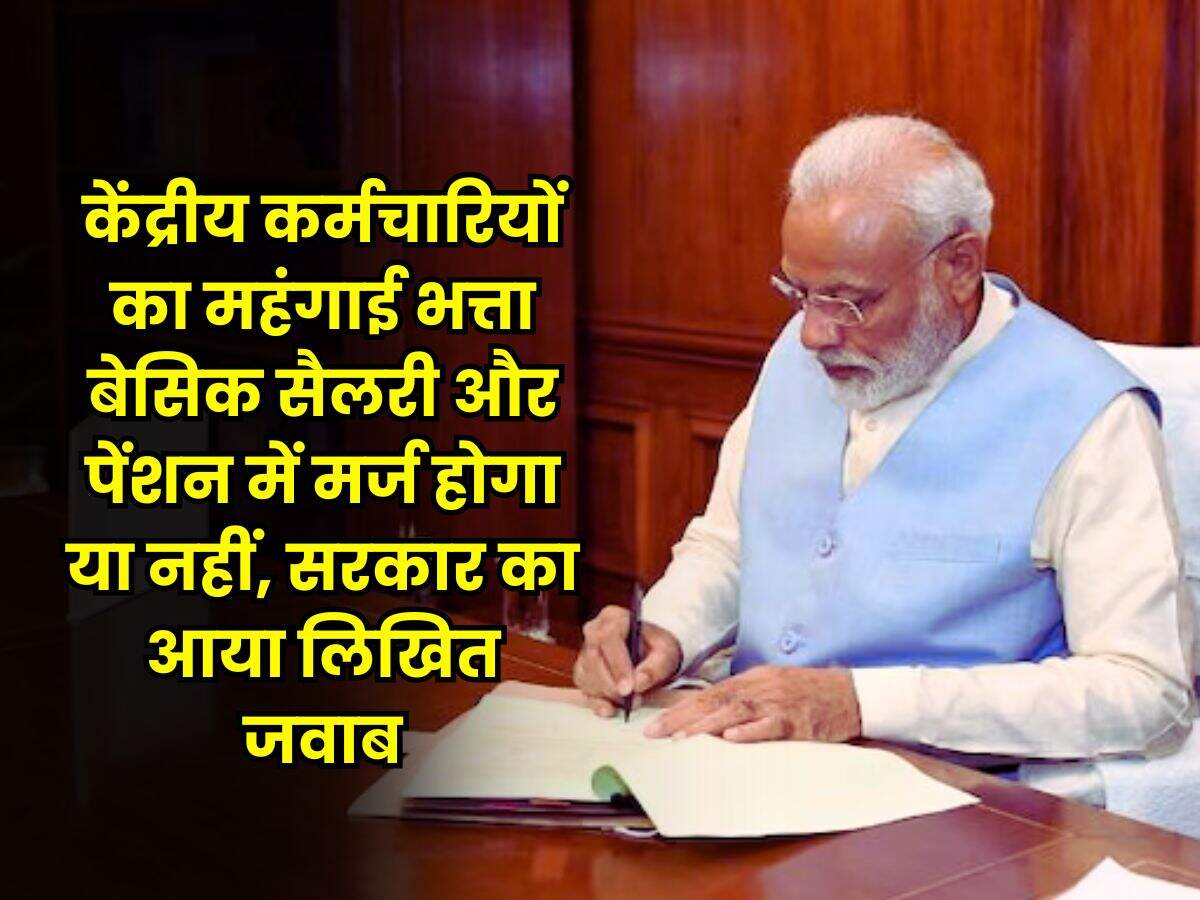 केंद्रीय कर्मचारियों
का महंगाई भत्ता
बेसिक सैलरी और
पेंशन में मर्ज होगा
या नहीं, सरकार का
आया लिखित
जवाब